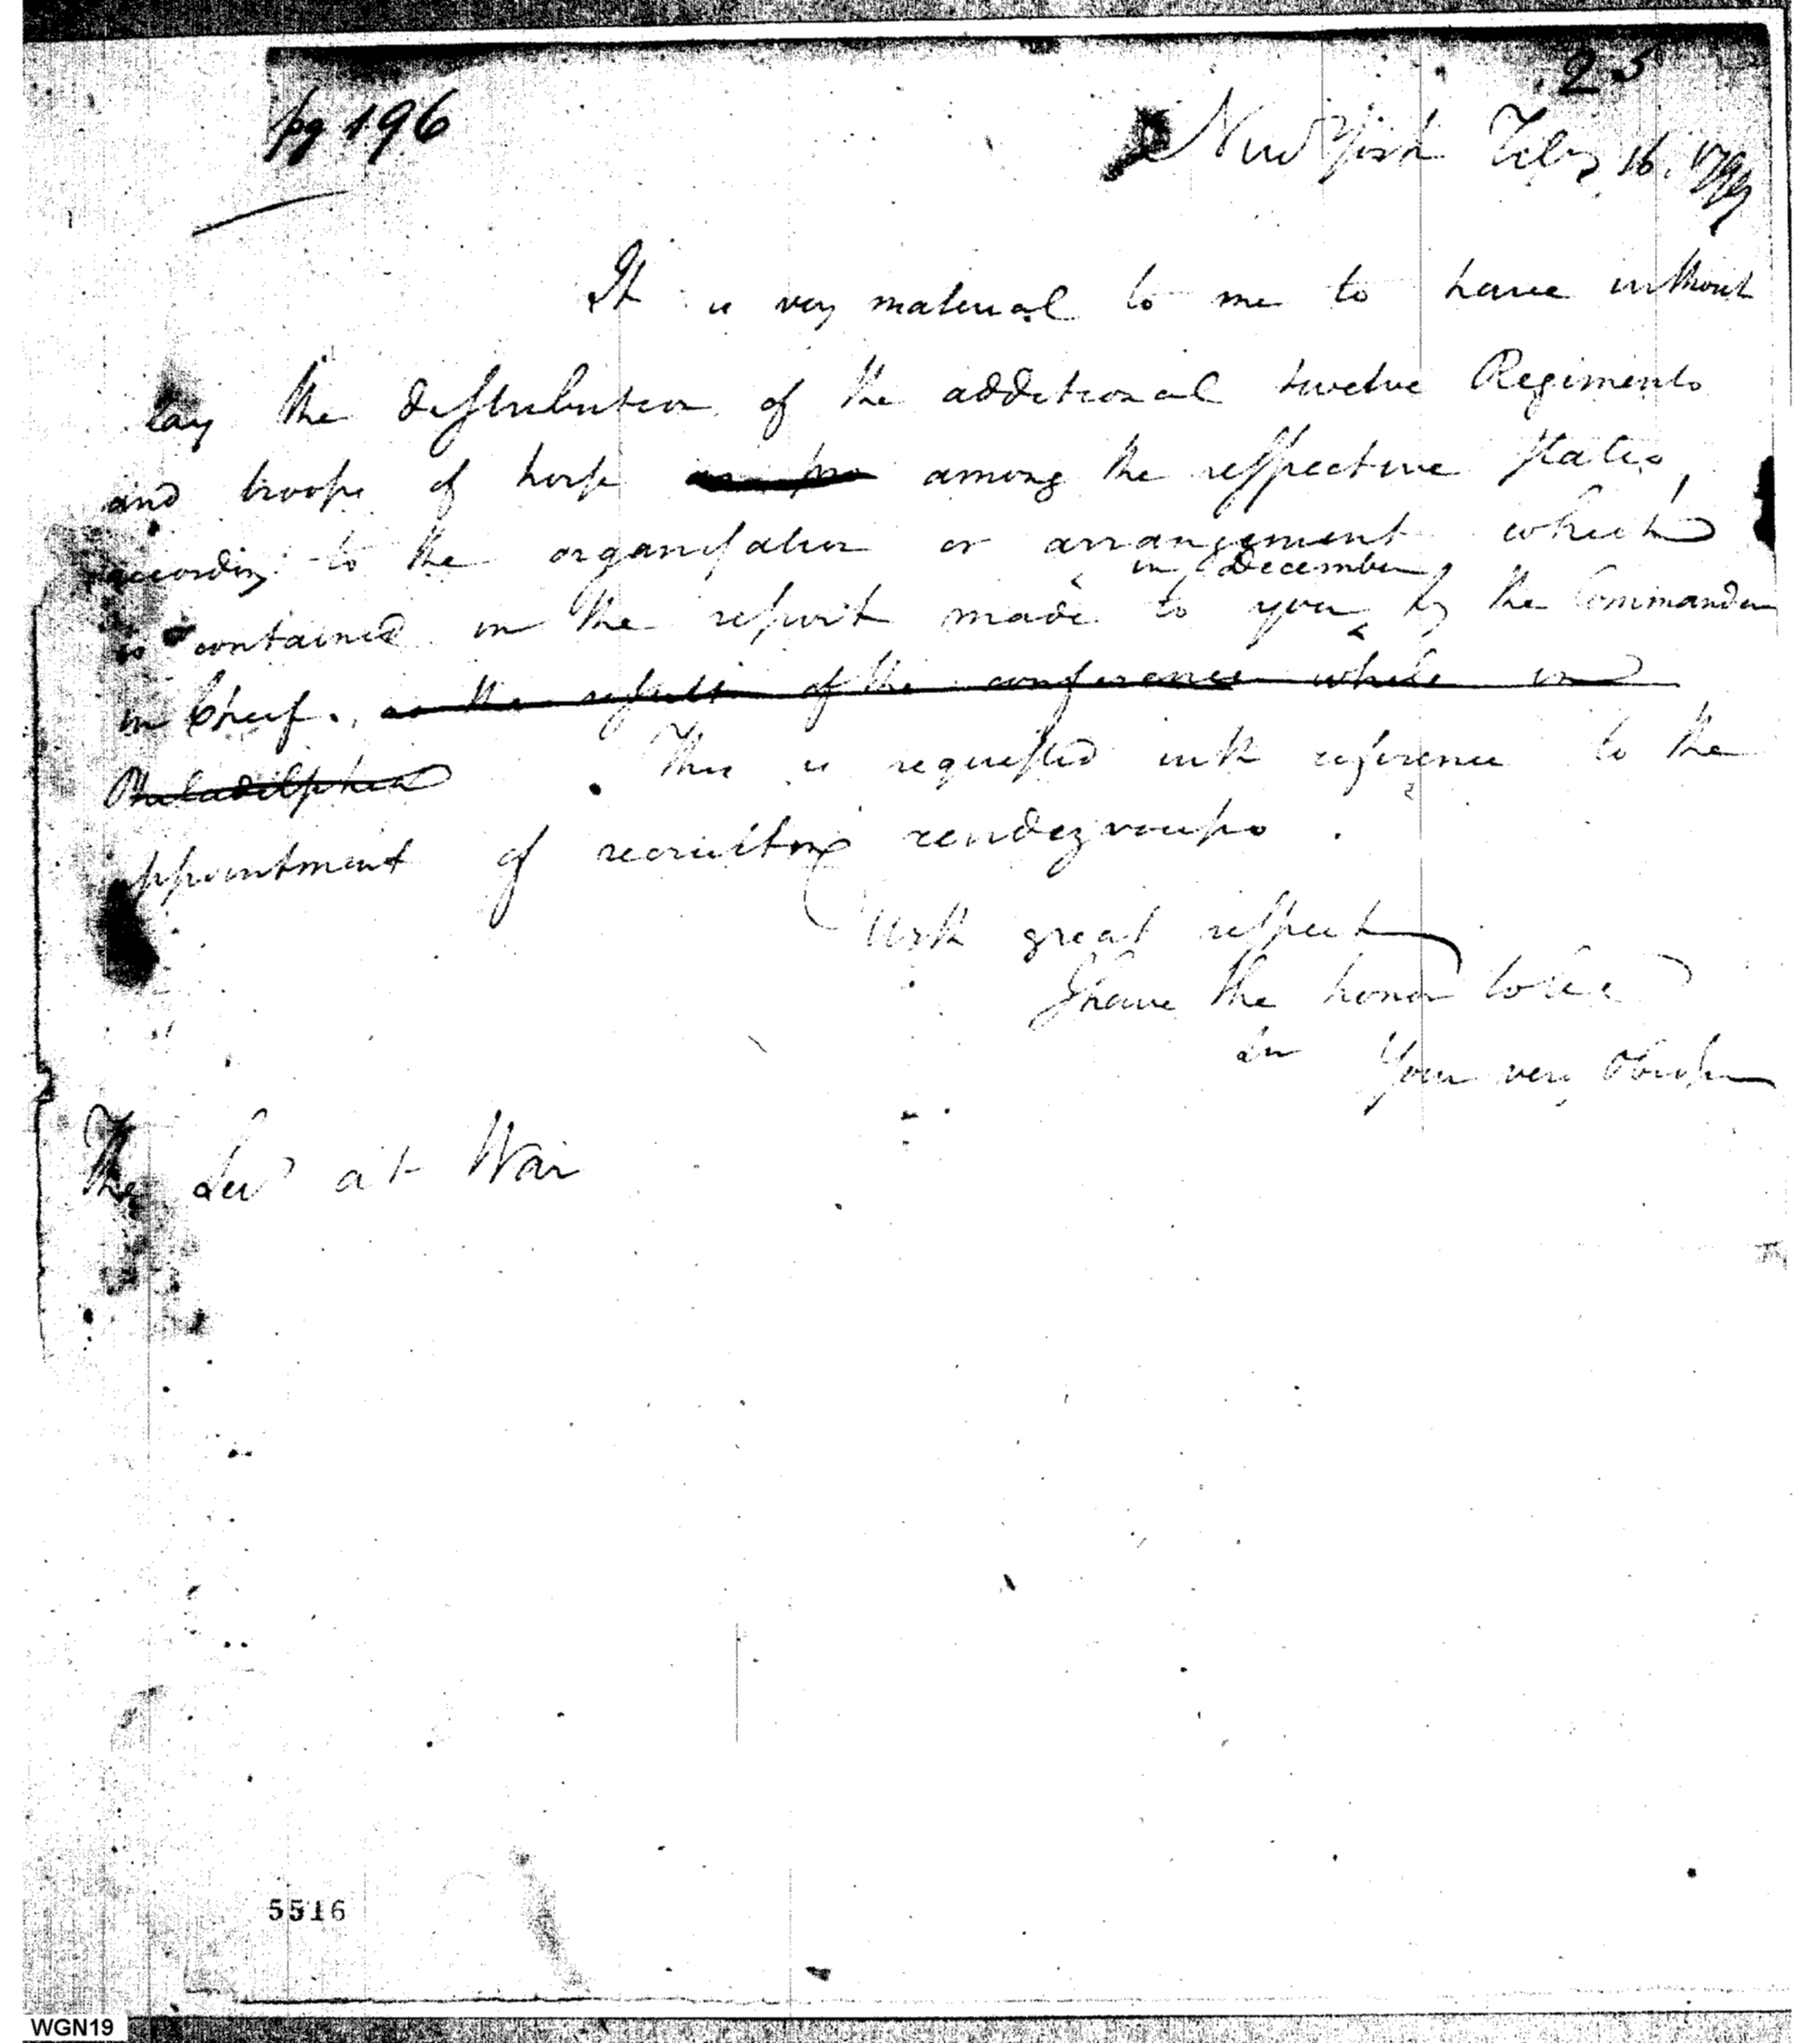 25
pg 196
New York Feby 16. 1799
It is very material to me to have without
lay the distribution of the additional twelve Regiments
and troops of horse among the respective States,
according to the organisation or arrangement which
in December
is contained in the report made to you by the Commander
in Chief. as the result of the conference while in
Philadelphia . This is requested with reference to the
appointment of recruiting rendezvouses .
With great respect
I have the honor to be
Your very Obed
The Sec at War
5516
WGN19